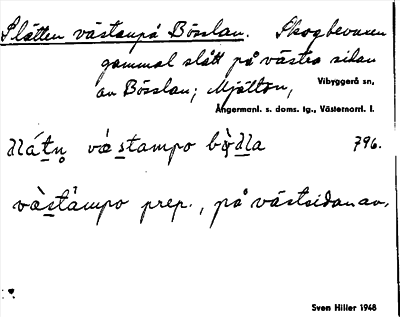 Slåtten västanpå Bösslan. Skogbevuxen
gammal slått på västra sidan
av Bösslan; Mjältön, Vibyggerå sn,
Ångermanl. s. doms. tg., Västernorrl. l.
västampo 796.
vàstämpo prep., på västsidan av.
Sven Hiller 1948